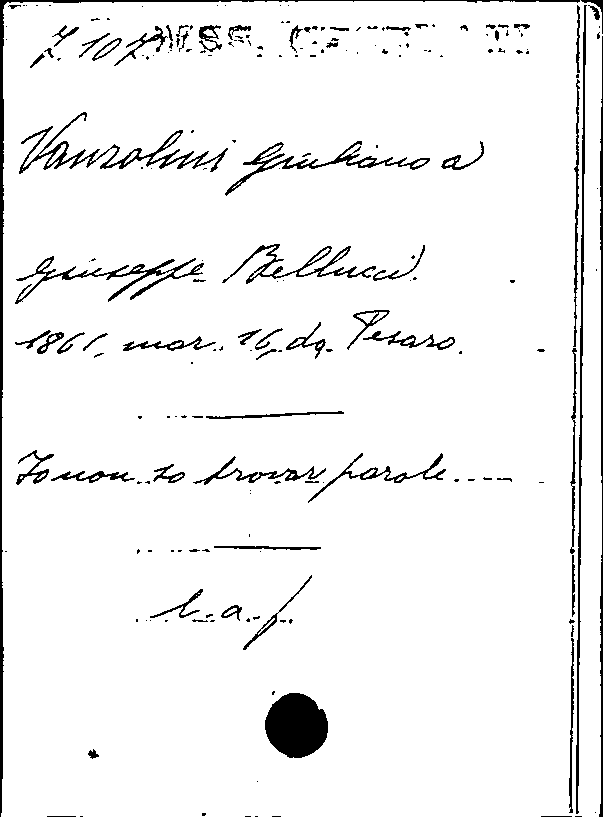 Z. 107 MSS.
Vanzolini Giuliano a
Giuseppe Bellucci.
1861, mar. 16, da Pesaro.
Io non so trovar parole.....
l. a. f.